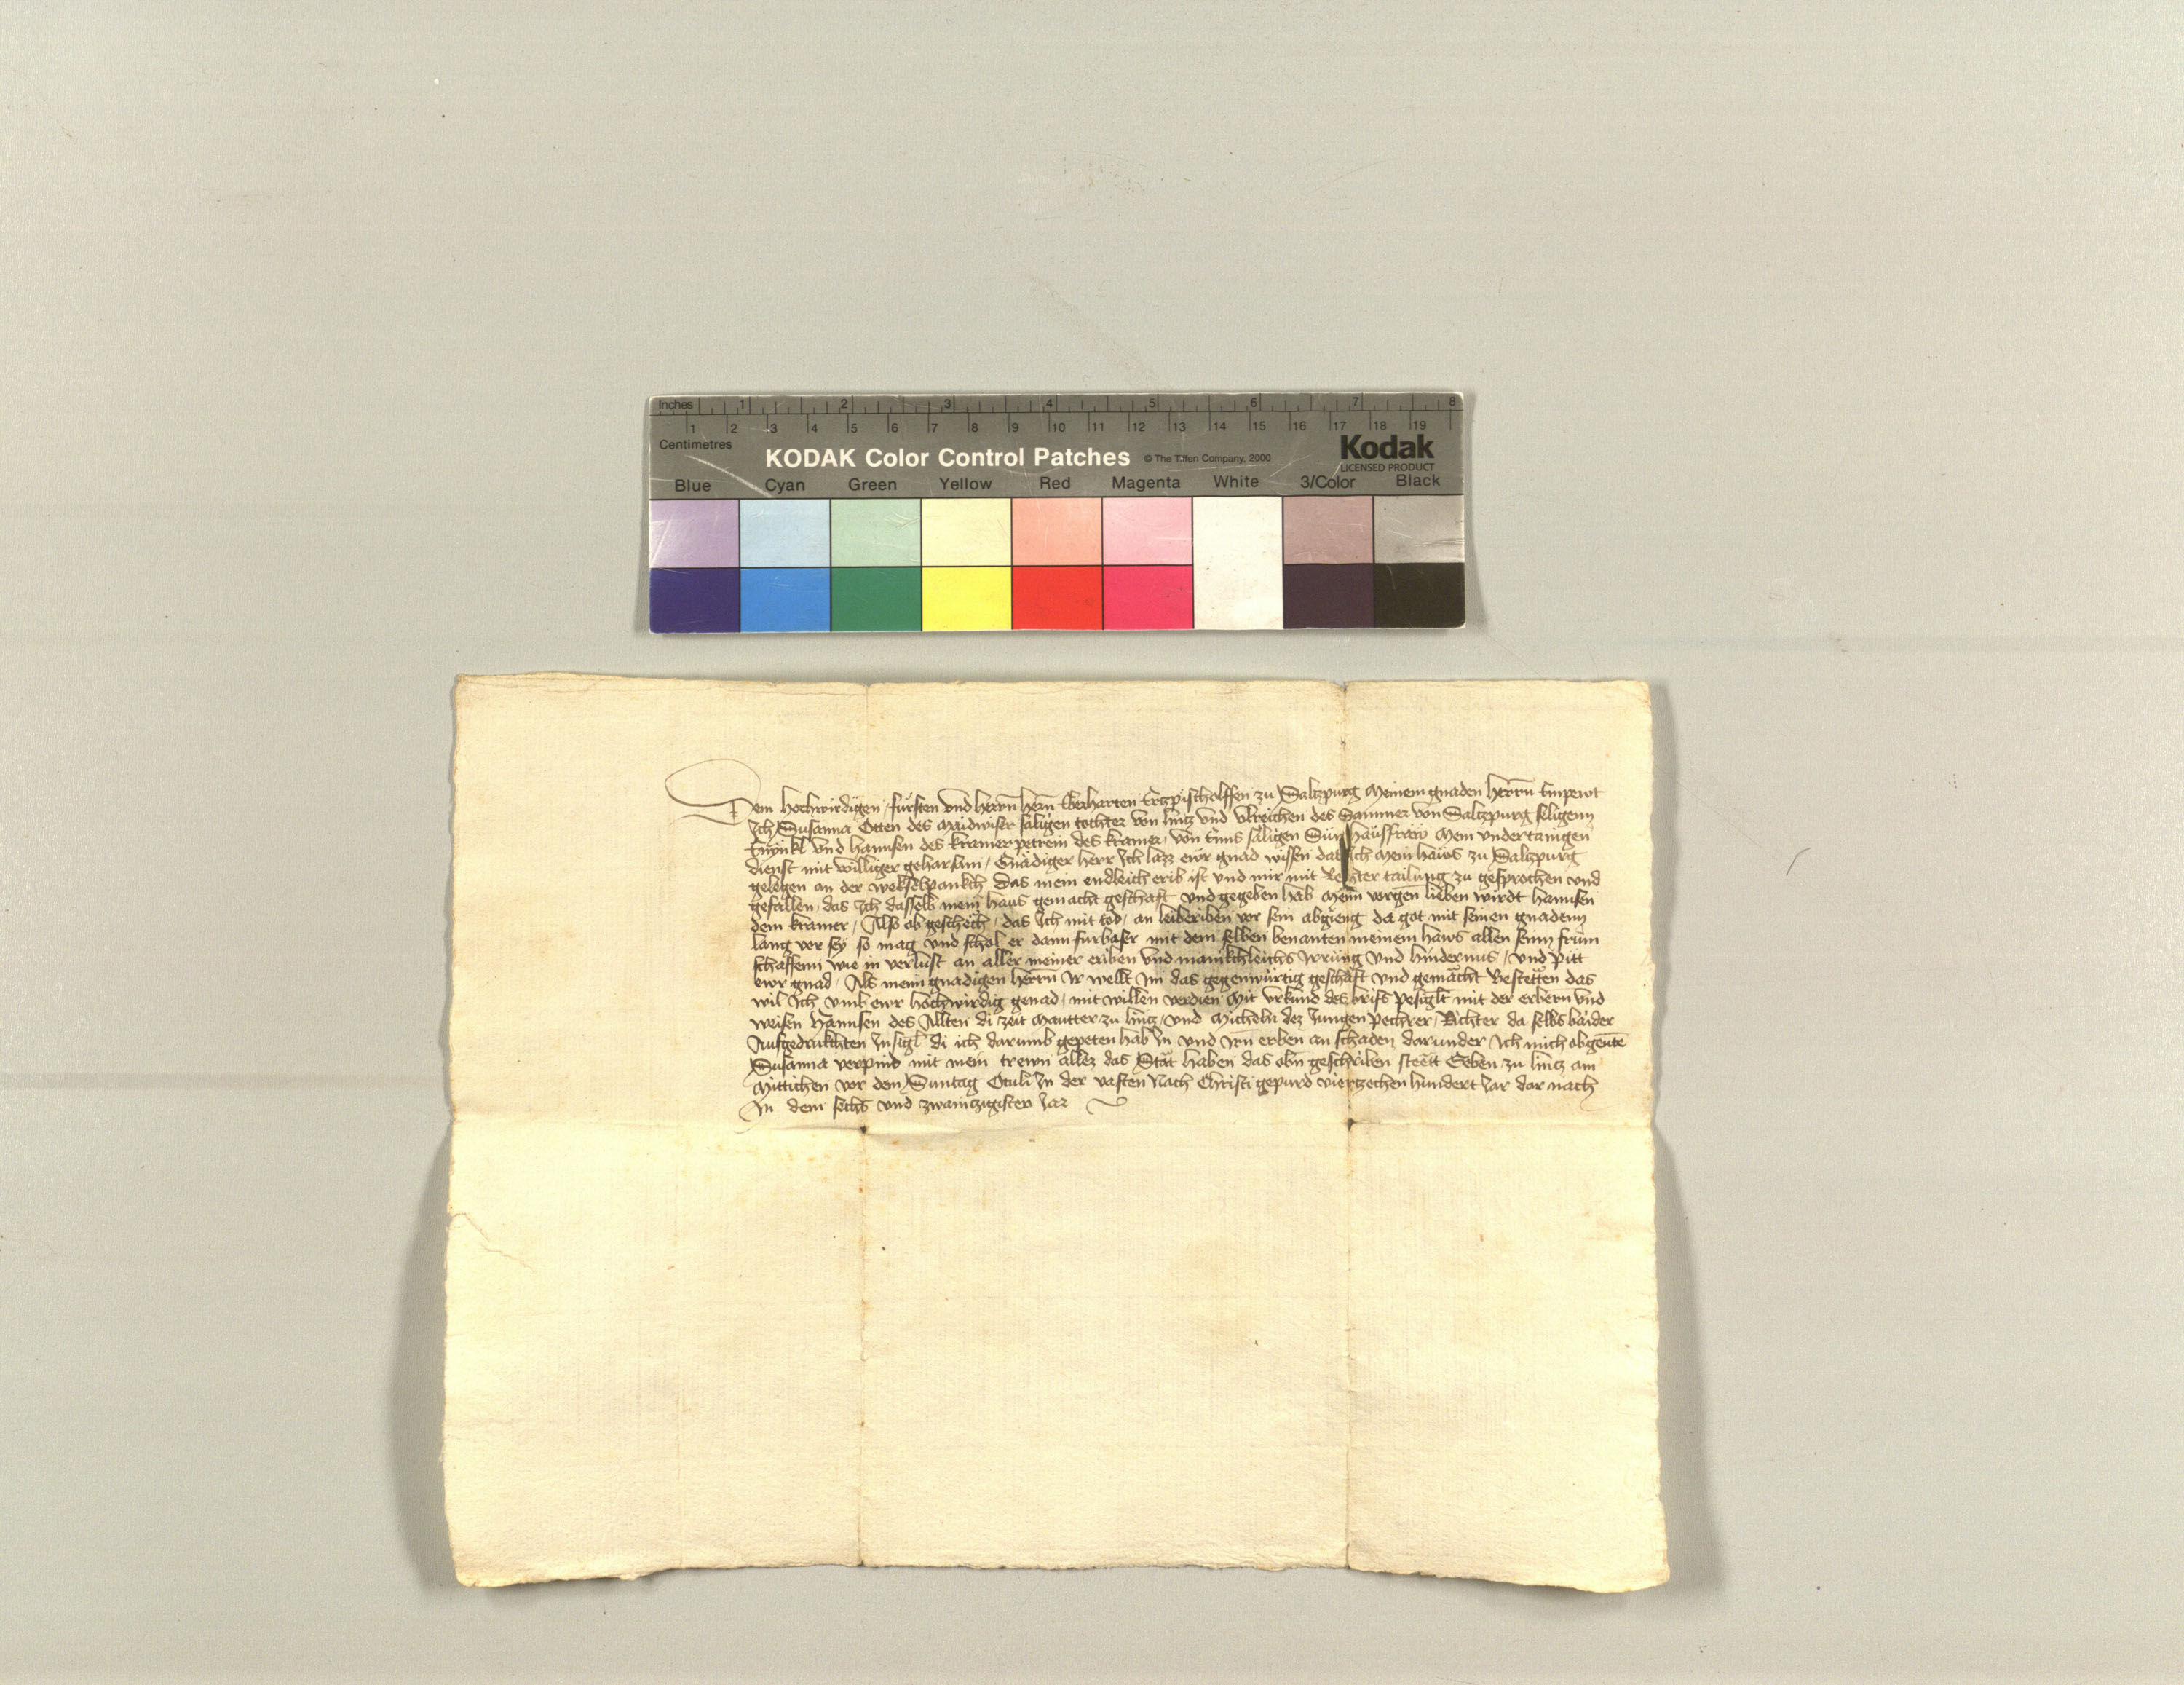 Inches 1 2 3 4 5 6 7 8
1 2 3 4 5 6 7 8 9 10 11 12 13 14 15 16 17 18 19
Centimetres
KODAK Color Control Patches © The Tiffen Company, 2000 Kodak
LICENSED PRODUCT
Blue Cyan Green Yellow Red Magenta White 3/Color Black
Dem hochwirdigen fürsten vnd herrn hern Eberharten Ertzpischolffen zu Saltzpurg Meinem gnaden herrn Enpewt
Ich Susanna Otten des saligen tochter von lintz vnd vlreichen des Sammer von Saltzpurg seligenn
Enynkl vnd hannsen des kramer petrein des kramer von Enns saligen Sün hausfraw Mein vndertanigen
dienst mit williger gehorsam / Gnadiger herr Ich lazz ewr gnad wissen daz ich mein haws zu Saltzpurg
gelegen an der das mein endleich erib ist vnd mir mit Rechter tailung zu gesprochen vnd
gefallen das Ich dasselb mein haus gemacht geschaft vnd gegeben hab Mein vorgen lieben wirdt hannsen
dem kramer / Also ob geschech / das Ich mit tod / an leiberiben vor sein abgieng da got mit seinen gnadenn
lang vor sey so mag vnd schol er dann furbaser mit dem selben benanten meinem haws allen seinn frum
schaffenn wie in verlust an aller meiner eriben vnd manikchleichs irrung vnd hindernus / vnd pitt
ewr gnad / Als mein gnadigen herrn Ir wellt im das gegenwürtig geschaft vnd gemacht bestetten das
wil Ich vmb ewr hochwirdig genad / mit willen verdien Mit vrkund des brifs pesiglt mit der erbern vnd
weisen Hannsen des Allten di zeit Mautter zu lintz / vnd Micheln dez Jungen pechrer / Richter da selbs baider
Aufgedrukchten Insigl di ich darumb gepeten hab In vnd irn erben an schaden darunder Ich mich obgente
Susanna verpind mit mein trewn allez das Stät haben das obn geschriben steett Geben zu lintz am
Mittichen vor dem Suntag Oculi In der vasten Nach Christi gepurd viertzechen hundert Jar dar nach
In dem sechs vnd zwaintzigisten Jar